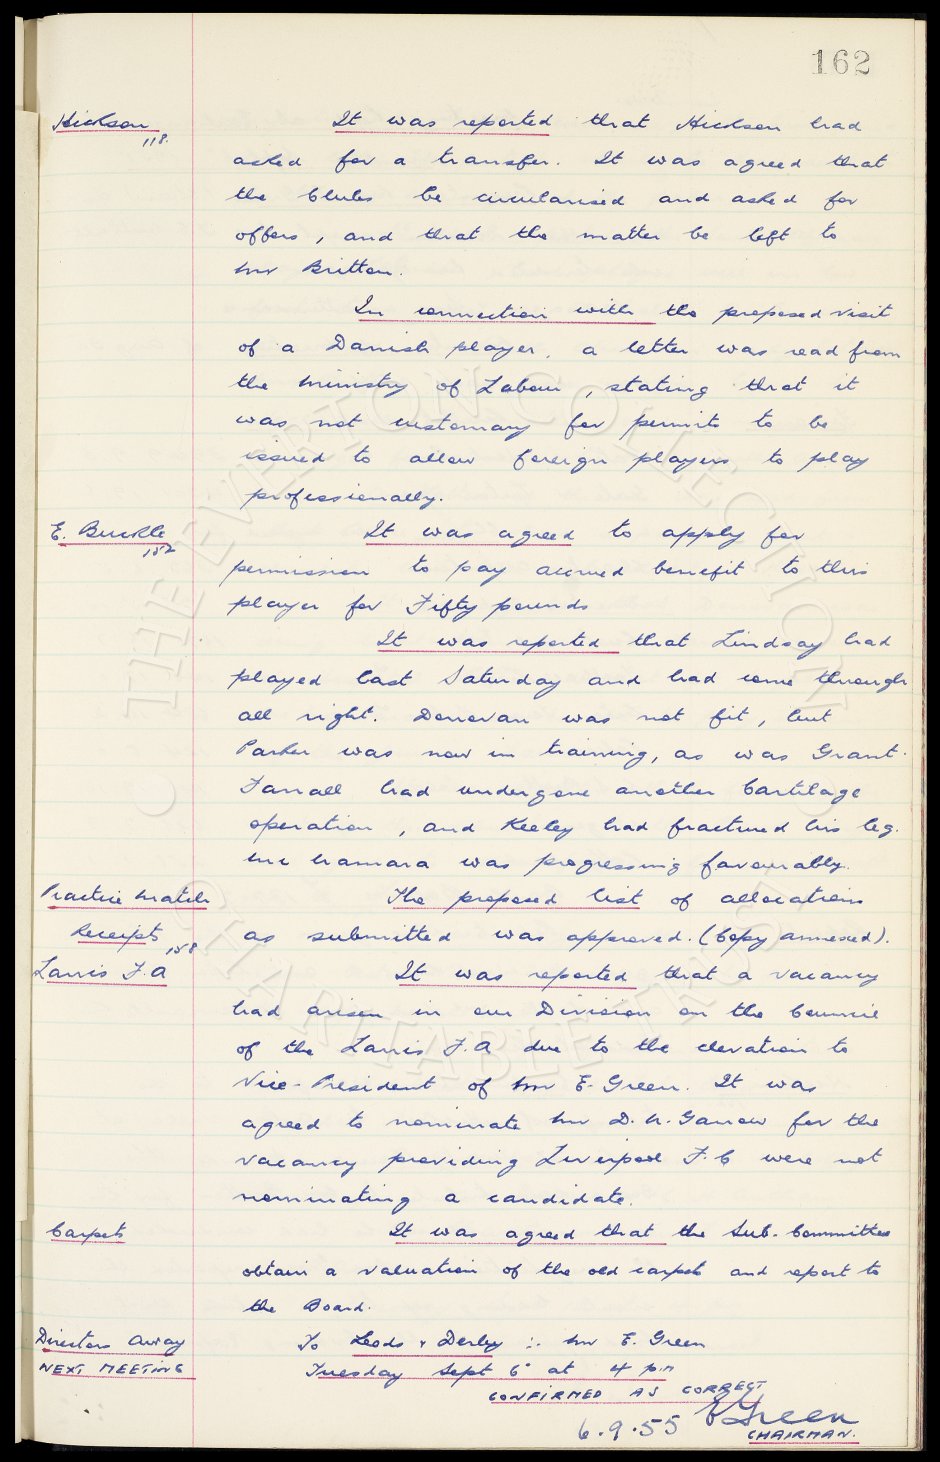 162
Hickson
118.
It was reported that Hickson had
asked for a transfer. It was agreed that
the Clubs be circularised and asked for
offers, and that the matter be left to
Mr Britton.
In connection with the proposed visit
of a Danish player, a letter was read from
the Ministry of Labour, stating that it
was not customary for permits to be
issued to allow foreign players to play
professionally.
E. Buckle
152
It was agreed to apply for
permission to pay accrued benefit to this
player for Fifty pounds
It was reported that Lindsay had
played last Saturday and had come through
all right. Donovan was not fit, but
Parker was now in training, as was Grant.
Farrall had undergone another Cartilage
operation, and Keeley had fractured his leg.
McNamara was progressing favourably.
Practice Match
Receipts
158
The proposed list of allocations
as submitted was approved. (Copy annexed).
Lancs F.A
It was reported that a vacancy
had arisen in our Division on the Council
of the Lancs F.A due to the elevation to
Vice-President of Mr E. Green. It was
agreed to nominate Mr D. N. Garrow for the
vacancy providing Liverpool F.C were not
nominating a candidate.
Carpets
It was agreed that the Sub-Committee
obtain a valuation of the old carpets and report to
the Board.
Directors Away
To Leeds & Derby :- Mr E. Green
NEXT MEETING
Tuesday Sept 6" at 4 pm
CONFIRMED AS CORRECT
6.9.55 E Green
CHAIRMAN.
© THE EVERTON COLLECTION
CHARITABLE TRUST